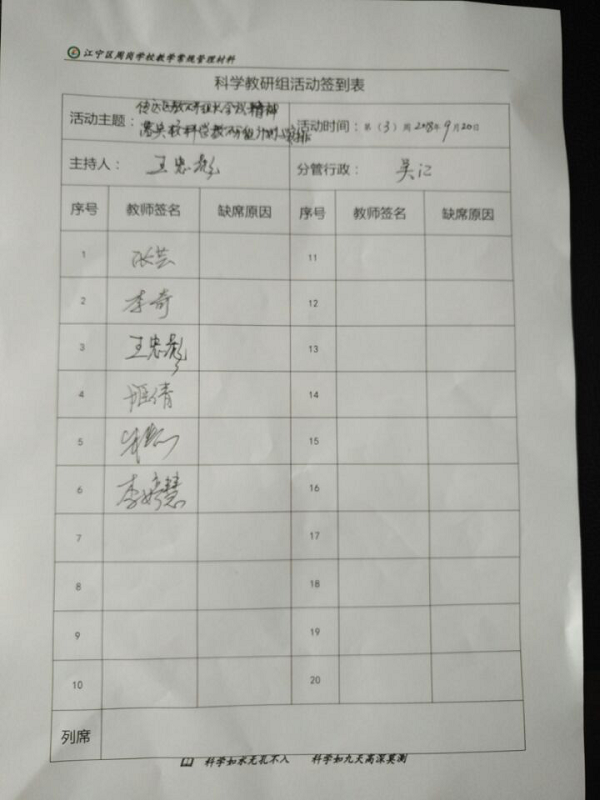 江宁区周岗学校教学常规管理材料
科学教研组活动签到表
活动主题：传达区教研组长会议精神
落实校科学教研组计划安排
活动时间：第（3）周 2018年9月20日
主持人：王忠彪 分管行政：吴江
序号 教师签名 缺席原因 序号 教师签名 缺席原因
1 张芸 11
2 李奇 12
3 王忠彪 13
4 倩 14
5 15
6 李婷慧 16
7 17
8 18
9 19
10 20
列席
科学如水无孔不入 科学如九天高深莫测